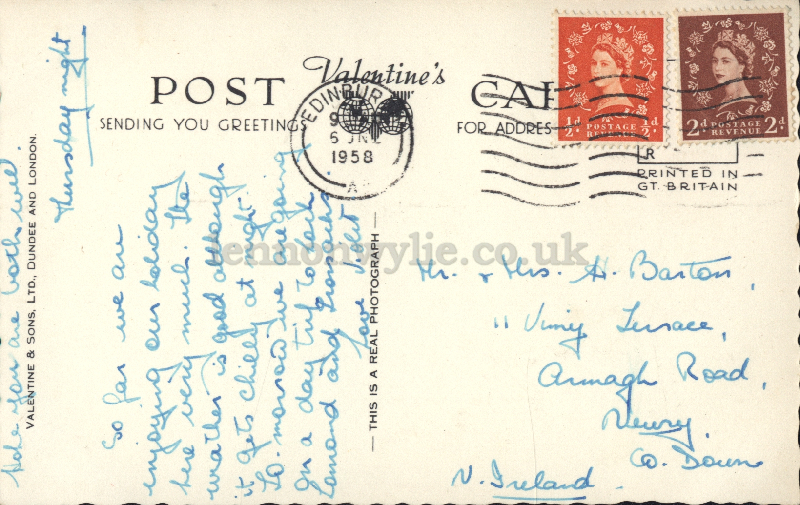 POST CARD
Valentine's
SENDING YOU GREETINGS
FOR ADDRESS
EDINBURGH
6 JNE
1958
½d POSTAGE REVENUE ½d
2d POSTAGE REVENUE 2d
R
PRINTED IN
GT. BRITAIN
VALENTINE & SONS, LTD., DUNDEE AND LONDON.
THIS IS A REAL PHOTOGRAPH
Thursday night
So far we are
enjoying our holiday
here very much. The
weather is good although
it gets chilly at night
To-morrow we are going
on a day trip to Loch
Lomond and Trossachs.
Love Violet
Hope you are both well.
Mr. & Mrs. H. Barton,
11 Vimy Terrace,
Armagh Road,
Newry,
Co. Down
N. Ireland.
lennonwylie.co.uk